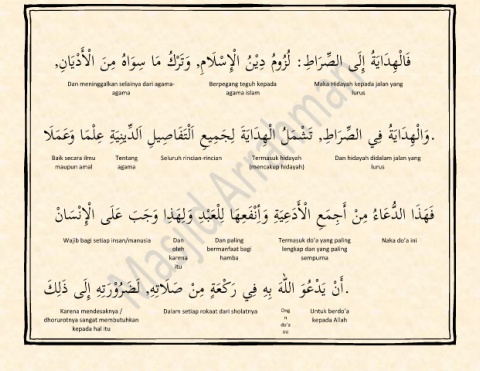 فَالْهِدَايَةُ إِلَى الصِّرَاطِ: لُزُومُ دِيْنُ الْإِسْلَامِ, وَتَرْكُ مَا سِوَاهُ مِنَ الْأَدْيَانِ,
Maka Hidayah kepada jalan yang lurus
Berpegang teguh kepada agama islam
Dan meninggalkan selainya dari agama-agama
وَالْهِدَايَةُ فِي الصِّرَاطِ, تَشْمَلُ الْهِدَايَةَ لِجَمِيعِ اَلتَّفَاصِيلِ اَلدِّينِيَةِ عِلْمًا وَعَمَلًا.
Dan hidayah didalam jalan yang lurus
Termasuk hidayah (mencakup hidayah)
Seluruh rincian-rincian
Tentang agama
Baik secara ilmu maupun amal
فَهَذَا الدُّعَاءُ مِنْ أَجْمَعِ الْأَدَعِيَةِ وَأَنْفَعِهَا لِلْعَبْدِ وَلِهَذَا وَجَبَ عَلَى الْإِنْسَانْ
Naka do'a ini
Termasuk do'a yang paling lengkap dan yang paling sempurna
Dan paling bermanfaat bagi hamba
Dan oleh karena itu
Wajib bagi setiap insan/manusia
أَنْ يَدْعُوَ اللهَ بِهِ فِي رَكْعَةٍ مِنْ صَلَاتِهِ, لَضَرُوْرَتِهِ إِلَى ذَلِكَ.
Untuk berdo'a kepada Allah
Dng n do'a ini
Dalam setiap rokaat dari sholatnya
Karena mendesaknya / dhorurotnya sangat membutuhkan kepada hal itu
Masjid Arrahman